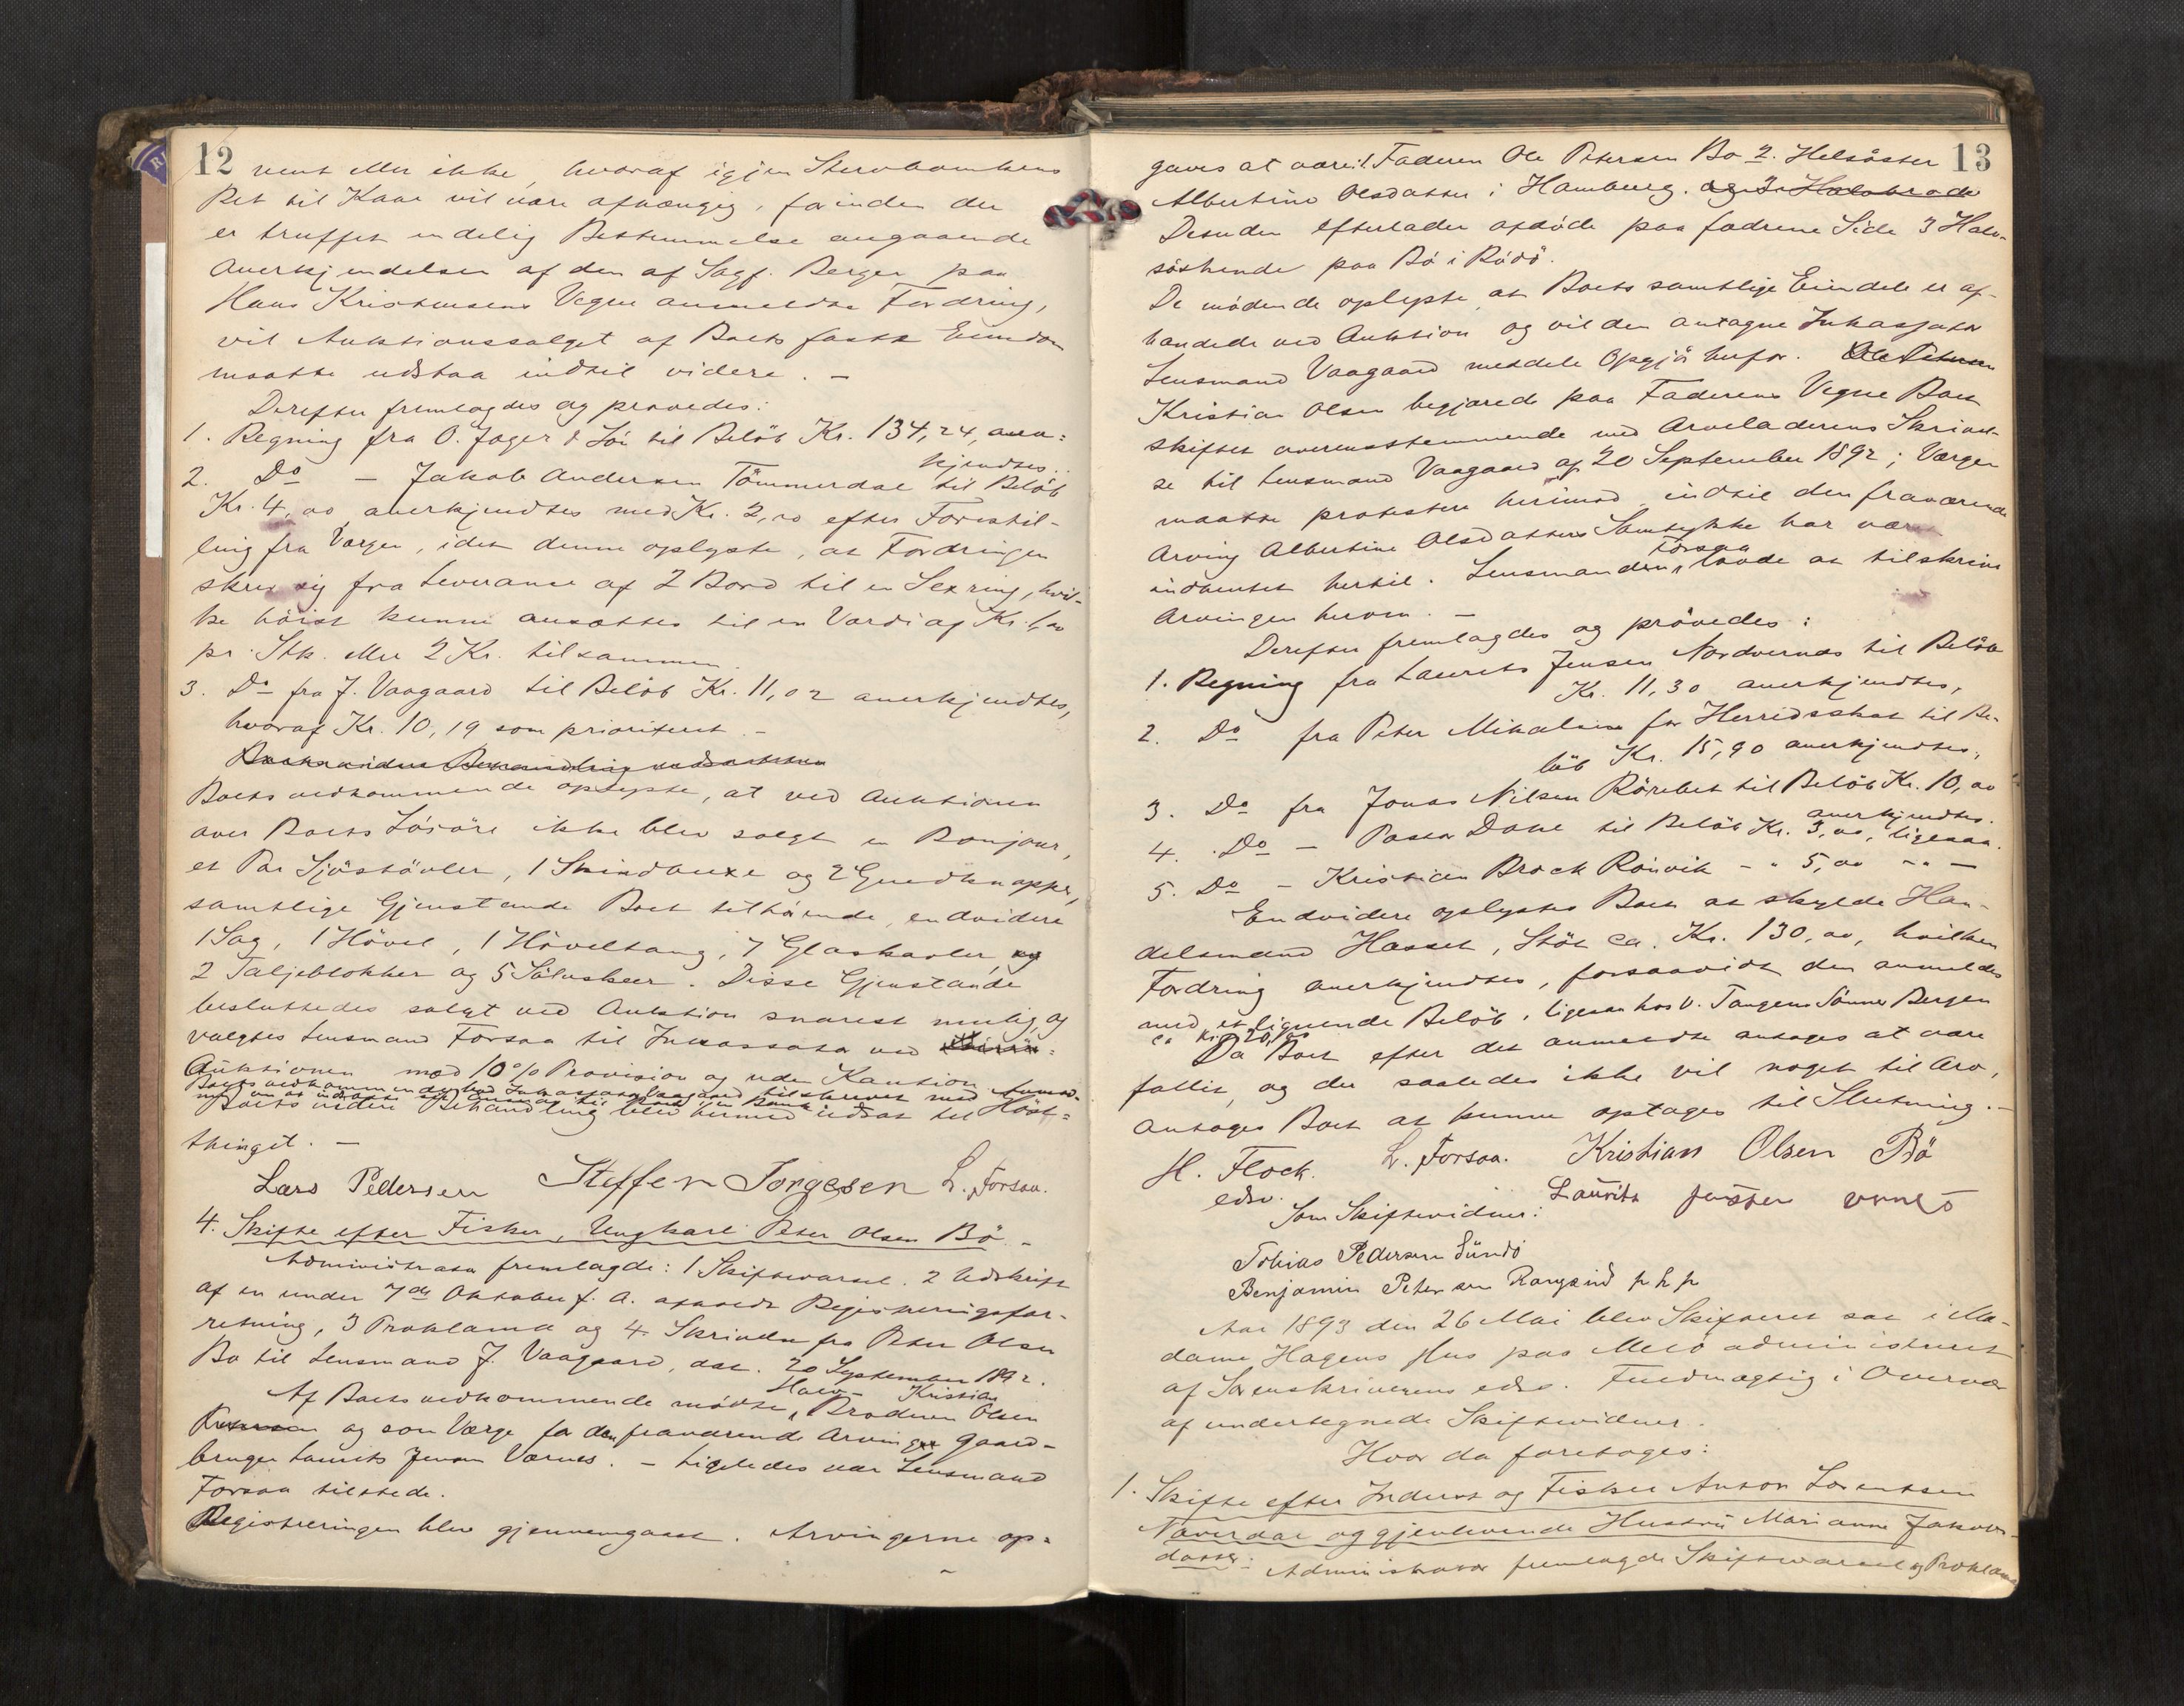 12
nent eller ikke, hvoraf igjen Stervboenkens
Ret til Kaar vil være afhængig, førinden der
er truffet endelig Bestemmelse angaaende
Anerkjendelsen af den af Sagf. Berger paa
Hans Kristensens Vegne anmeldte Fordring,
vil Auktionssalget af Boets faste Eiendom
maatte udstaa indtil videre. –
Derefter fremlagdes og prøvedes:
1. Regning fra O. Jager & Søn til Beløb Kr. 134,24, aner=
kjendtes.
2. Do – Jakob Andersen Tömmerdal til Beløb
Kr. 4,00 anerkjendtes med Kr. 2,00 efter Forestil-
ling fra Værgen, idet denne oplyste, at Fordringen
skrev sig fra Leverance af 2 Bord til en Sexring, hvil-
ke høist kunne ansættes til en Værdi af Kr. 1,00
pr. Stk. eller 2 Kr. tilsammen.
3. Do fra J. Vaagaard til Beløb Kr. 11,02 anerkjendtes,
hvoraf Kr. 10,19 som prioriteret. –
Boets vedkommende oplyste, at ved Auktionen
over Boets Løsøre ikke blev solgt en Bonjour,
et Par Sjøstøvler, 1 Skindbuxe og 2 Guldknapper,
samtlige Gjenstande Boet tilhørende, endvidere
1 Sag, 1 Hövel, 1 Höveltang, 7 Glaskavler, og
2 Taljeblokker og 5 Sölvskeer. Disse Gjenstande
besluttedes solgt ved Auktion snarest mulig, og
valgtes Lensmand Forsaa til Inkassator ved
Auktionen med 10% Provision og uden Kaution.
Boets vedkommende bad Inkassator Vaagaard tilskrevet med Anmod-
ning om at indsætte sit Ansvar til Boet in Bank
Boets videre Behandling blev hermed udsat til Höst=
thinget. –
Lars Pedersen Steffen Jørgesen L. Forsaa.
4. Skifte efter Fisker, Ungkarl Peter Olsen Bö –
Administrator fremlagde: 1 Skiftevarsel. 2 Udskrift
af en under 7de Oktober f. A. afholdt Registreringsfor-
retning, 3 Proklama og 4. Skrivelse fra Peter Olsen
Bø til Lensmand J. Vaagaard, dat. 20 September 1892.
Af Boets vedkommende mødte Halv- Broderen Kristian Olsen
og som Værge for den fraværende Arving Gaard-
bruger Laurits Jensen Værnes. – Ligeledes var Lensmand
Forsaa tilstede.
Registreringen blev gjennemgaaet. Arvingerne op=
13
gaves at være: 1. Faderen Ole Petersen Bø 2. Helsöster
Albertine Olsdatter i Hamburg. og 3 Halvbrødre
Desuden efterlader afdøde paa fædrene Side 3 Halv-
søskende paa Bö i Rödö.
De mødende oplyste, at Boets samtlige Eiendele er af-
hændede ved Auktion og vil den antagne Inkassator
Lensmand Vaagaard meddele Opgjør herfor. Ole Petersen
Kristian Olsen begjærede paa Faderens Vegne Boet
skiftet overensstemmende med Arveladerens Skrivel-
se til Lensmand Vaagaard af 20 September 1892; Værgen
maatte protestere herimod indtil den fraværende
Arving Albertine Olsdatters Samtykke har været
indhentet hertil. Lensmanden Forsaa lovde at tilskrive
Arvingen herom. –
Derefter fremlagdes og prövedes:
1. Regning fra Laurits Jensen Nordvernæs til Beløb
Kr. 11,30 anerkjendtes,
2. Do fra Peter Mikalsen for Herredsskat til Be-
løb Kr. 15,90 anerkjendtes,
3. Do fra Jonas Nilsen Rörebet til Beløb Kr. 10,00
anerkjendtes.
4. Do – Pastor Dahl til Beløb Kr. 3,00, ligesaa.
5. Do – Kristian Brock Rönvik – " 5,00 – " –
Endvidere oplystes Boet at skylde Han-
delsmand Hasset, Stöt ca. Kr. 130,00, hvilken
Fordring anerkjendtes, forsaavidt den anmeldes
med et lignende Beløb, ligesaa hos V. Tangens Sønner Bergen
ca Kr. 20,00
Da Boet efter det anmeldte antages at være
fallit, og der saaledes ikke vil noget til Arv,
antages Boet at kunne optages til Slutning. –
H. Flock. L. Forsaa. Kristian Olsen Bö
edsv. Laurits Jensen
Som Skiftevidner:
Tobias Pedersen Sundö
Benjamin Petersen Rangsund p h p
Aar 1893 den 26 Mai blev Skifteret sat i Ma-
dame Hagens Hus paa Melö administreret
af Sorenskriverens edsv. Fuldmægtig i Overvær
af undertegnede Skiftevidner.
Hvor da foretoges:
1. Skifte efter Inderst og Fisker Anton Lorentsen
Taverdal og gjenlevende Hustru Marianne Jakobs-
datter: Administrator fremlagde Skiftevarsel og Proklama